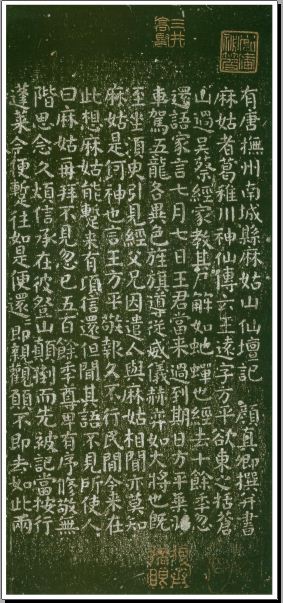 有唐撫州南城縣麻姑山仙壇記 顏真卿撰并書
麻姑者葛稚川神仙傳云王遠字方平欲東之括蒼
山過吳蔡經家教其尸解如虵蟬也經去十餘年忽
還語家言七月七日王君當来過到期日方平乘羽
車駕五龍各異色旌旗導從威儀赫弈如大將也既
至坐須臾引見經父兄因遣人與麻姑相聞亦莫知
麻姑是何神也言王方平敬報久不行民間今来在
此想麻姑能暫来有頃信還但聞其語不見所使人
曰麻姑再拜不見忽已五百餘年尊卑有序修敬無
階思念久煩信承在彼登山顛倒而先被記當按行
蓬萊今便暫往如是便還即親觀願不即去如此兩